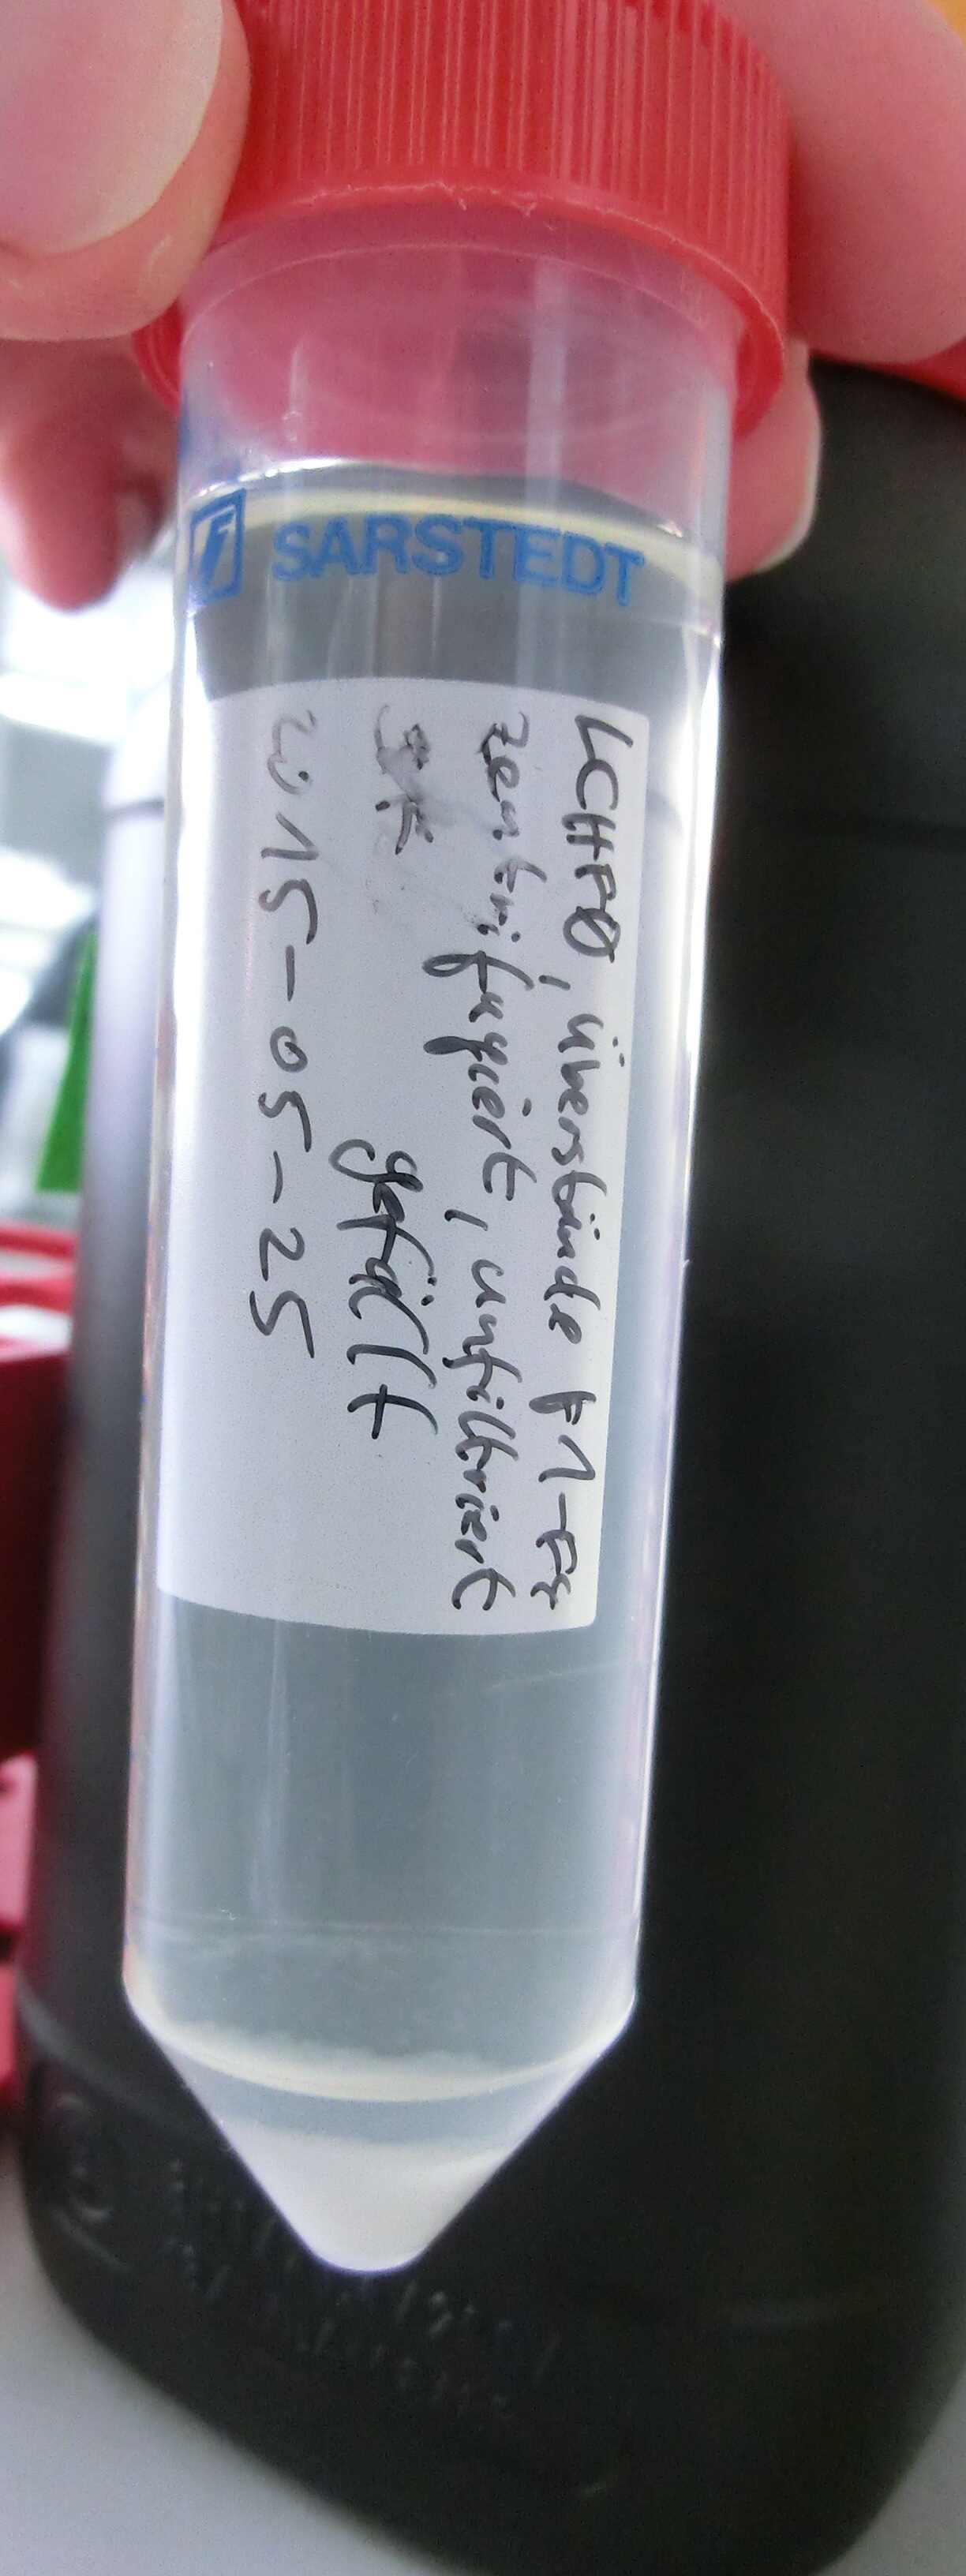 SARSTEDT
LCHPØ, überstände F1-F8
zentrifugiert, unfiltriert
gefällt
2015-05-25